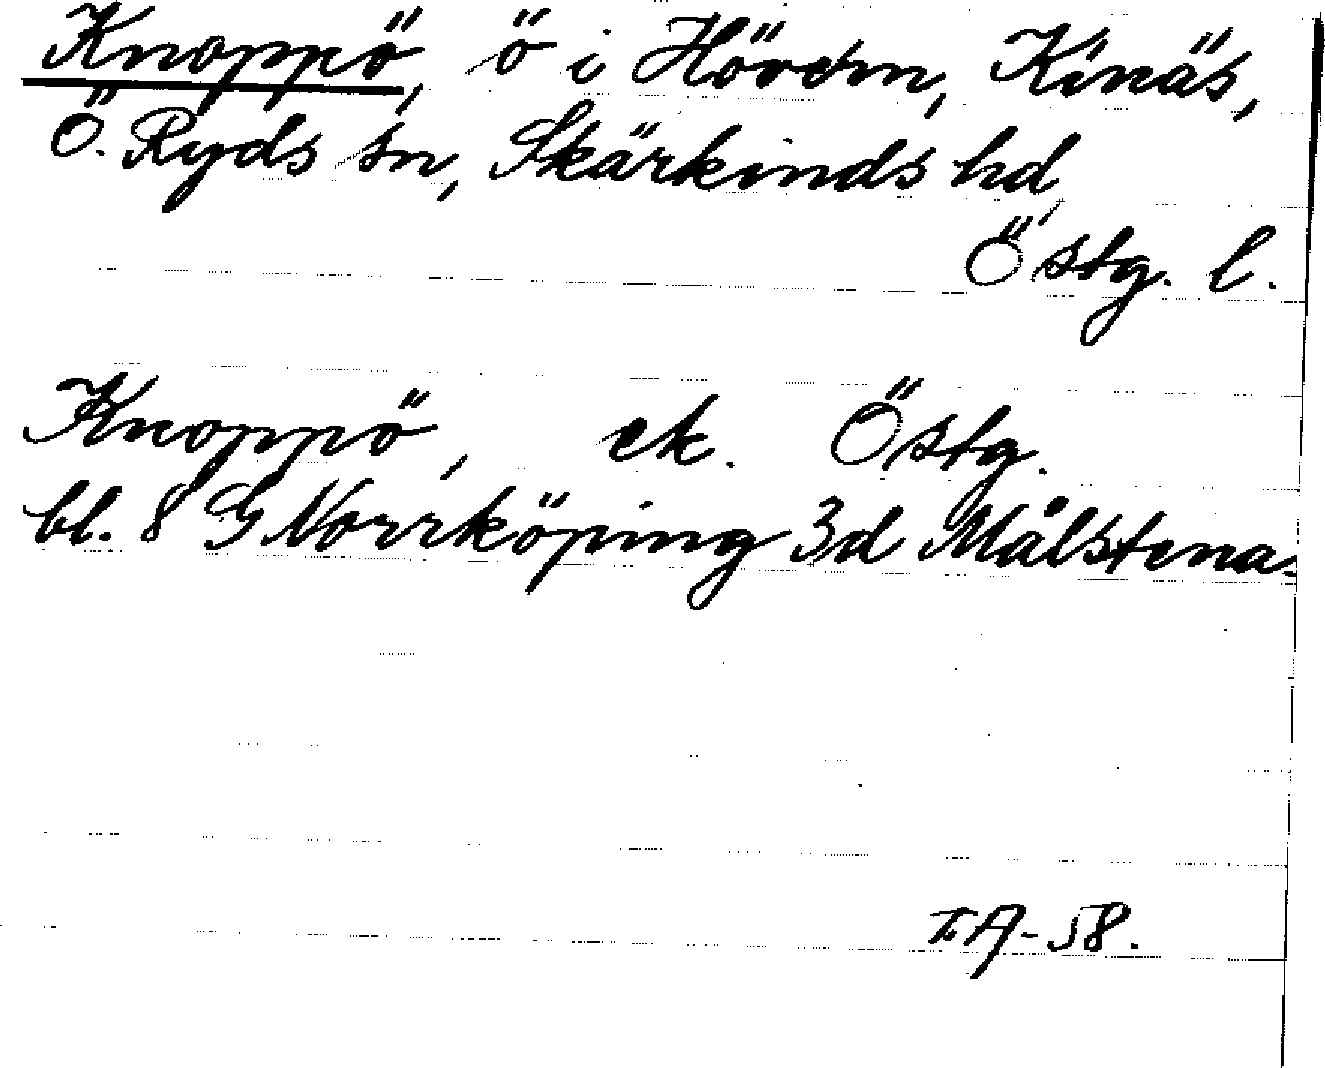 Knoppö, ö i Hövern, Kinäs,
Ö. Ryds sn, Skärkinds hd,
Östg. l.
Knoppö, ek. Östg.
bl. 8 G Norrköping 3d Målstena.
TA-58.